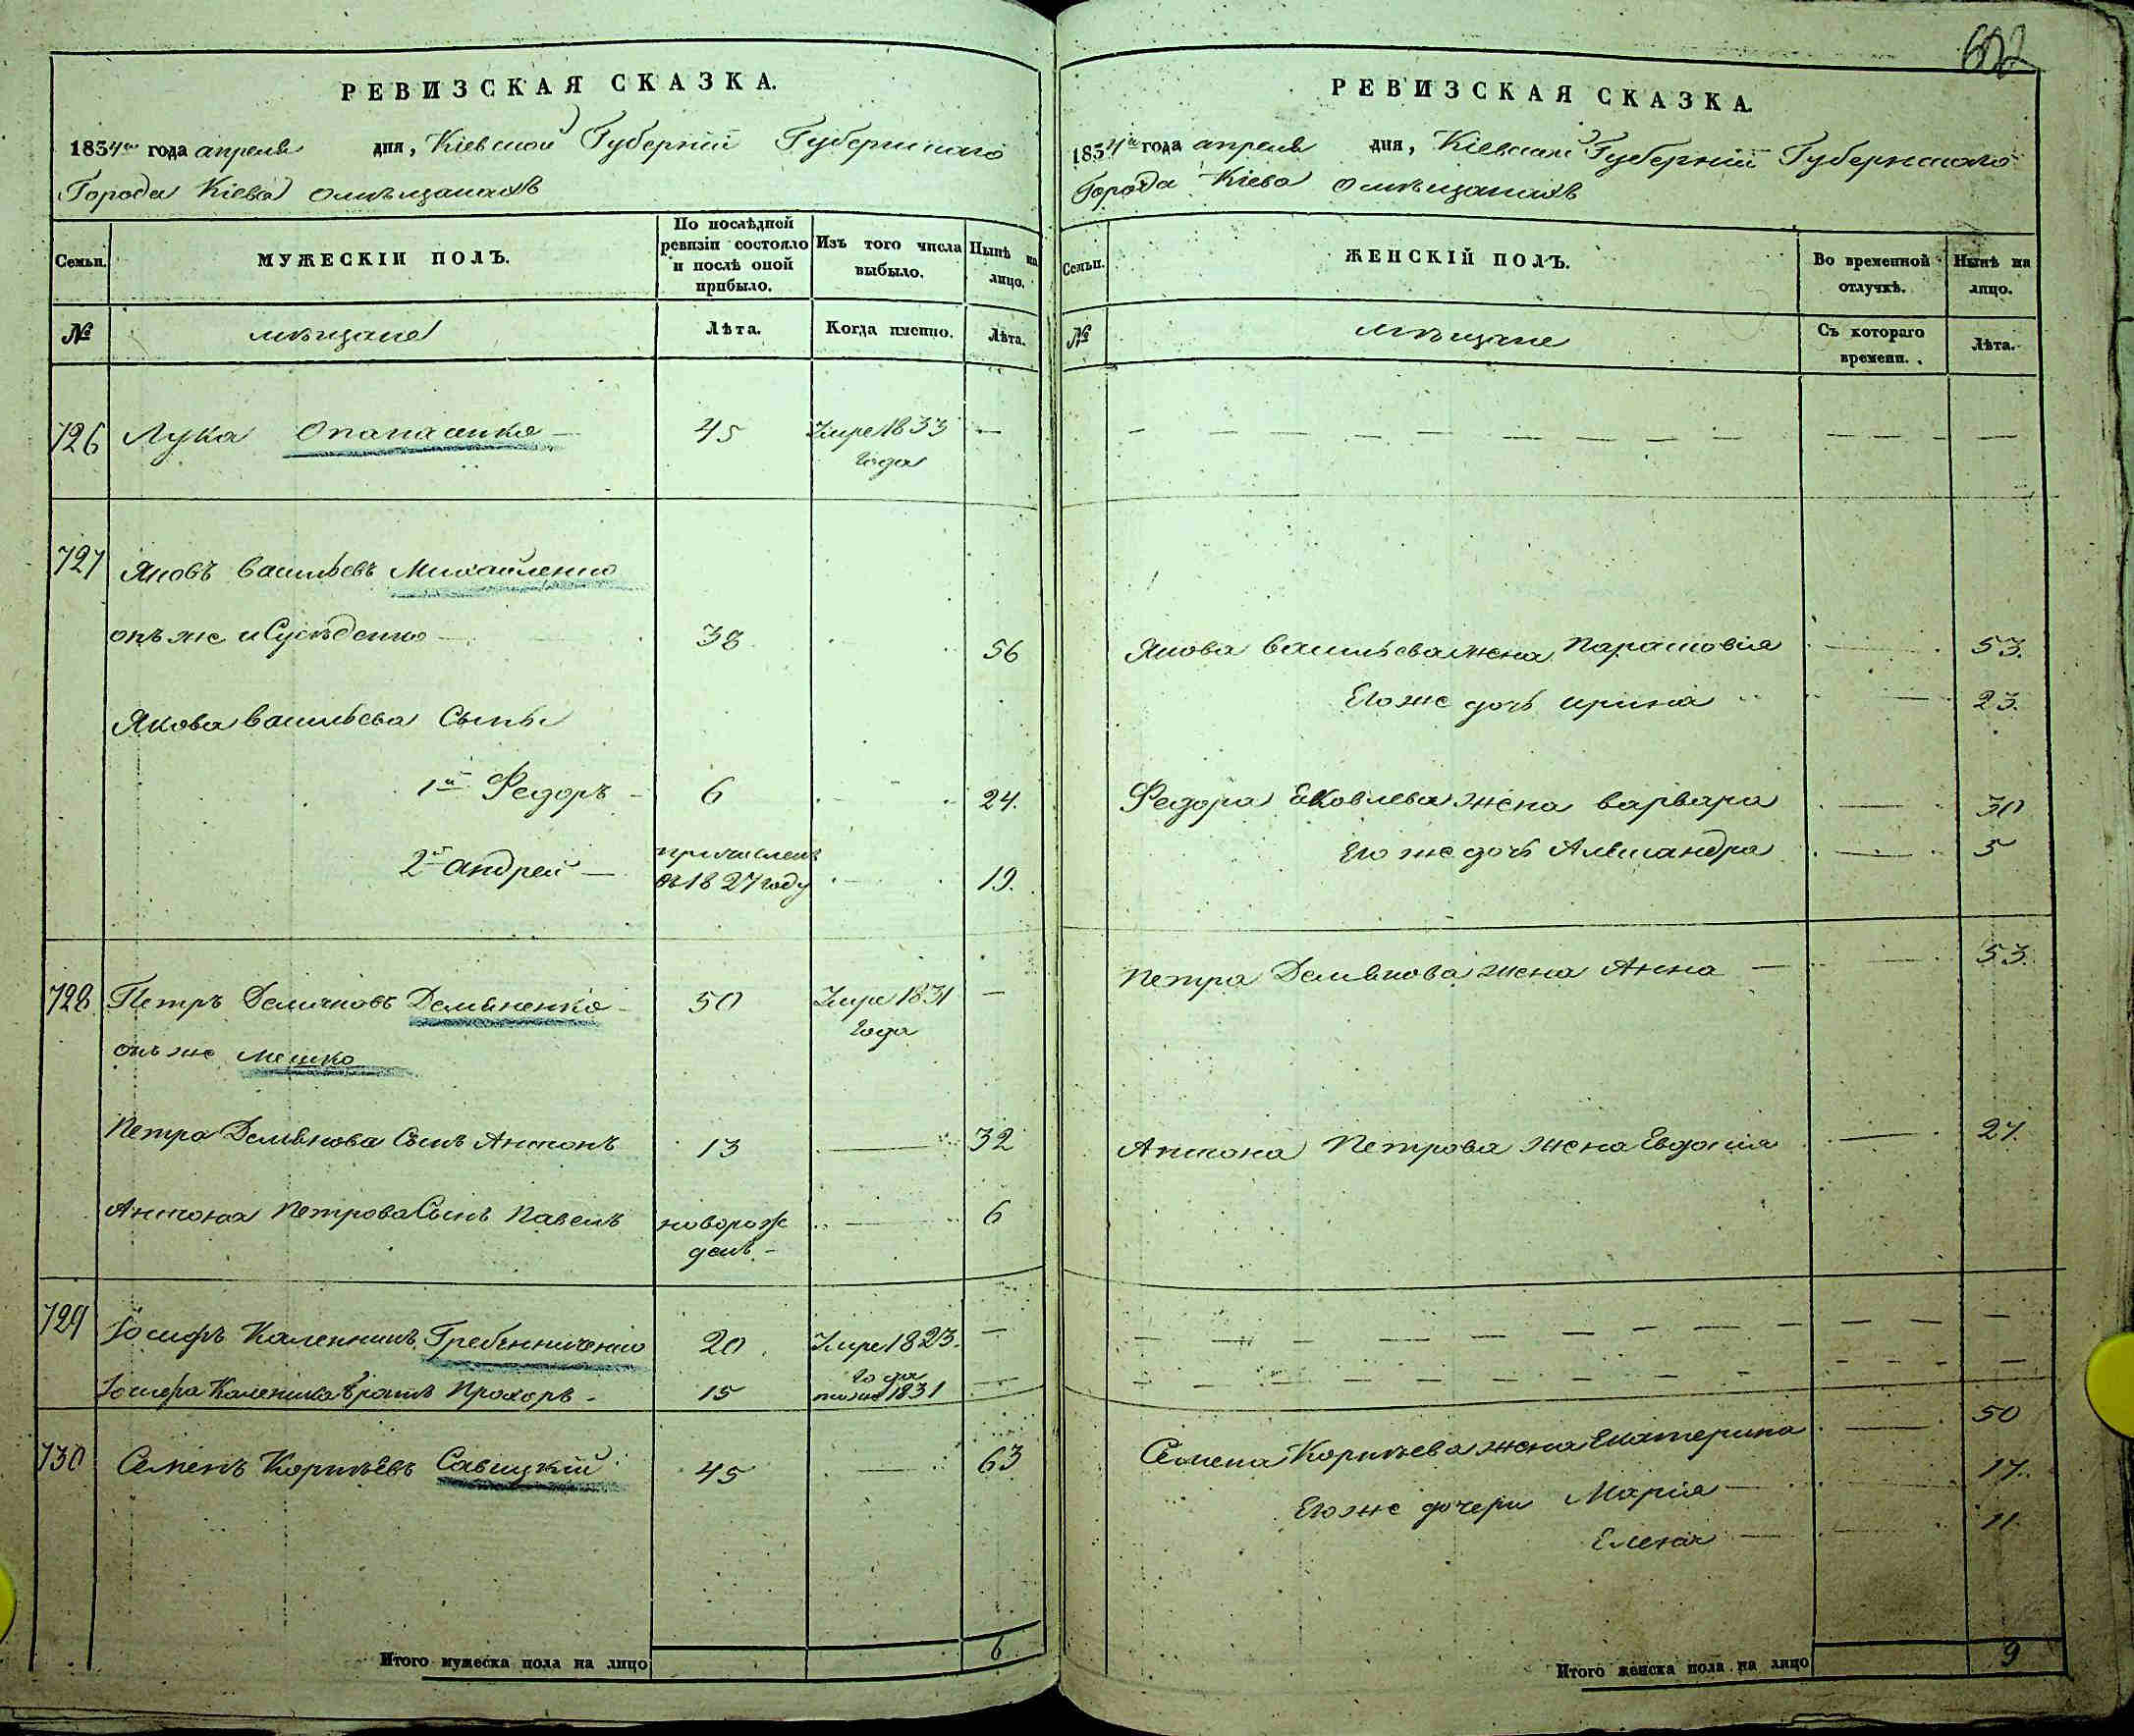 602
РЕВИЗСКАЯ СКАЗКА.
1834го года апреля дня, Кіевской Губерніи Губернскаго
Города Кіева омѣщанахъ
Семьи.
МУЖЕСКІЙ ПОЛЪ.
По послѣдней ревизіи состояло и послѣ оной прибыло.
Изъ того числа выбыло.
Нынѣ на лицо.
№
мѣщане
Лѣта.
Когда имянно.
Лѣта.
726 Лука Опанасенко — 45 Умре 1833 года —
727 Яковъ Васильевъ Михайленко
онъ же и Сусѣденко — 38 56
Якова Васильева Сыны
1й Федоръ — 6 24.
2й Андрей — причисленъ въ 1827 году 19.
728 Петръ Демяновъ Демяненко — 50 Умре 1831 года —
онъ же Мешко
Петра Демянова Сынъ Антонъ 13 — 32
Антона Петрова Сынъ Павелъ новорожденъ — — 6
729 Іосифъ Каленинъ Гребенниченко 20 Умре 1823. года —
Іосифа Каленина братъ Прохоръ — 15 1831 —
730 Семенъ Корнѣевъ Савицкій 45 — 63
Итого мужеска пола на лицо 6
РЕВИЗСКАЯ СКАЗКА.
1834й года апреля дня, Кіевской Губерніи Губернскаго
Города Кіева омѣщанахъ
Семьи.
ЖЕНСКІЙ ПОЛЪ.
Во временной отлучкѣ.
Нынѣ на лицо.
№
мѣщане
Съ котораго времени.
Лѣта.
Якова Васильева жена Парасковія — 53.
Его же дочь Ирина — 23.
Федора Яковлева жена Варвара — 30
Его же дочь Александра — 5
Петра Демянова жена Анна — — 53.
Антона Петрова жена Евдокія — 27.
Семена Корнѣева жена Екатерина — 50
Его же дочери Марія — — 17.
Елена — — 11.
Итого женска пола на лицо 9